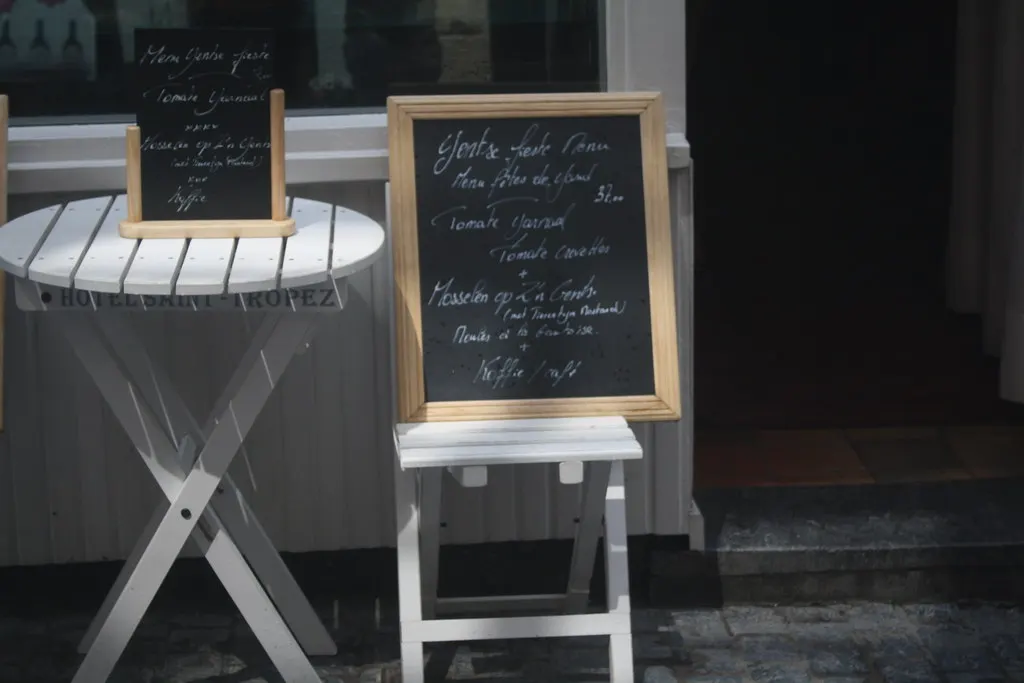 Menu Gentse feeste
Tomate Garnaal
xxxx
Mosselen op Z'n Gents
(met Tierenteyn Mostaard)
xxx
Koffie
HOTEL SAINT-TROPEZ
Gentse feeste Menu
Menu fêtes de Gand
32,00
Tomate Garnaal
Tomate crevettes
+
Mosselen op Z'n Gents.
(met Tierenteyn Mostaard)
Moules à la gantoise.
+
Koffie / café